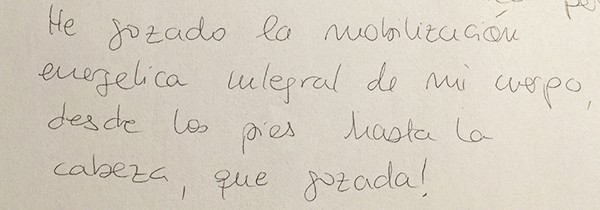 He gozado la mobilización
energetica integral de mi cuerpo,
desde los pies hasta la
cabeza, que gozada!